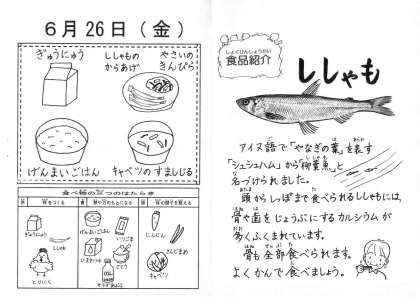 6月26日(金)
ぎゅうにゅう
ししゃもの
からあげ
やさいの
きんぴら
げんまいごはん
キャベツの すましじる
ぎゅうにゅう
ししゃも
とりにく
げんまいごはん
さとう
にんじん
さんどまめ
キャベツ
しょくひんしょうかい
食品紹介
ししゃも
アイヌ語で「やなぎの葉」を表す
「シュシュハム」から「柳葉魚」と
名づけられました。
頭からしっぽまで食べられるししゃもには、
骨や歯をじょうぶにするカルシウムが
多くふくまれています。
骨も全部食べられます。
よくかんで食べましょう。